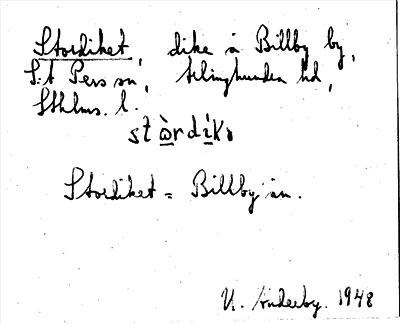 Stordiket, dike å Billby by,
S:t Pers sn, Seminghundra hd,
Sthlms. l.
stòrdíkə
Stordiket = Billby ån.
1948